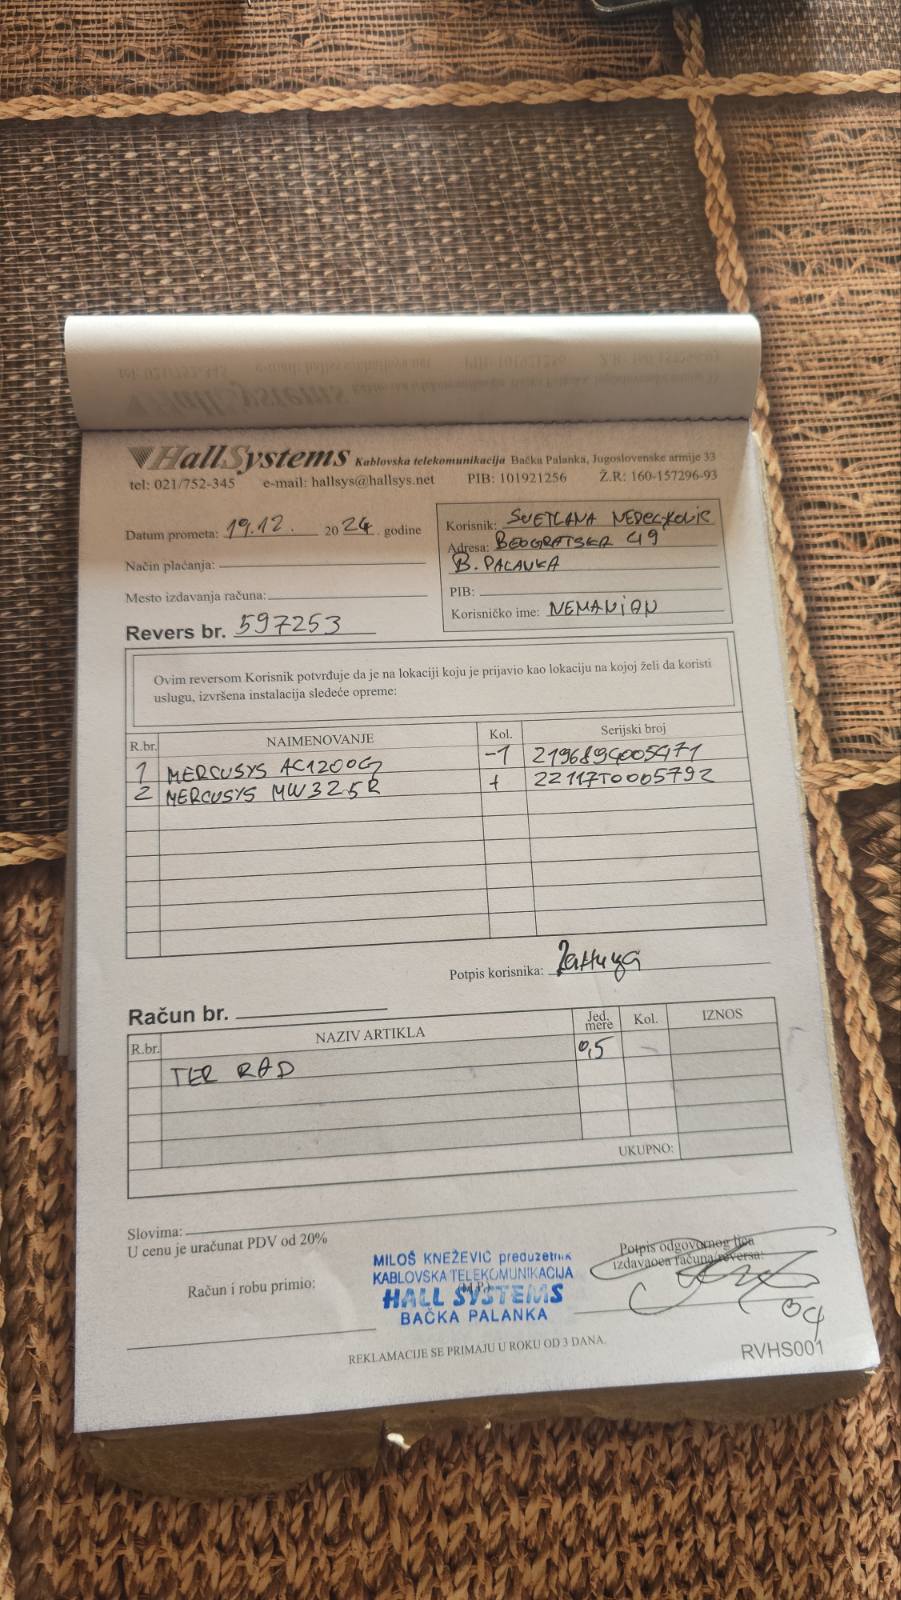 HallSystems Kablovska telekomunikacija Bačka Palanka, Jugoslovenske armije 33
tel: 021/752-345 e-mail: hallsys@hallsys.net PIB: 101921256 Ž.R: 160-157296-93
Datum prometa: 19.12. 2024. godine
Način plaćanja:
Mesto izdavanja računa:
Revers br. 597253
Korisnik: SVETLANA
Adresa: BEOGRATSKA 49
B. PALANKA
PIB:
Korisničko ime: NEMANJAN
Ovim reversom Korisnik potvrđuje da je na lokaciji koju je prijavio kao lokaciju na kojoj želi da koristi
uslugu, izvršena instalacija sledeće opreme:
R.br. NAIMENOVANJE Kol. Serijski broj
1 MERCUSYS AC1200G -1 2196894005471
2 MERCUSYS MW325R + 22117T0005792
Potpis korisnika:
Račun br.
R.br. NAZIV ARTIKLA Jed. mere Kol. IZNOS
TER RAD 0,5
UKUPNO:
Slovima:
U cenu je uračunat PDV od 20%
Račun i robu primio:
MILOŠ KNEŽEVIĆ preduzetnik
KABLOVSKA TELEKOMUNIKACIJA
(M.P.)
HALL SYSTEMS
BAČKA PALANKA
Potpis odgovornog lica
izdavaoca računa/reversa:
04
REKLAMACIJE SE PRIMAJU U ROKU OD 3 DANA.
RVHS001